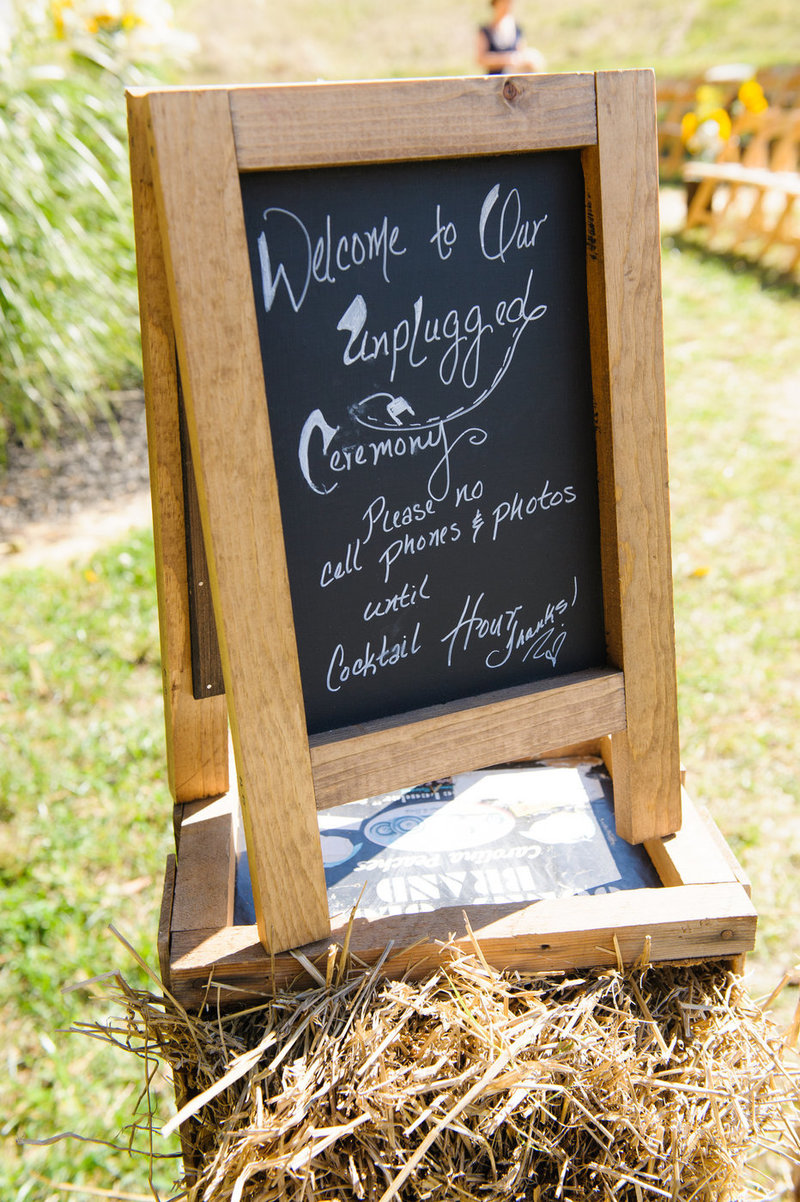 Welcome to Our
Unplugged
Ceremony
Please no
cell phones & photos
until
Cocktail Hour
Thanks!
BRAND
Carolina Peaches